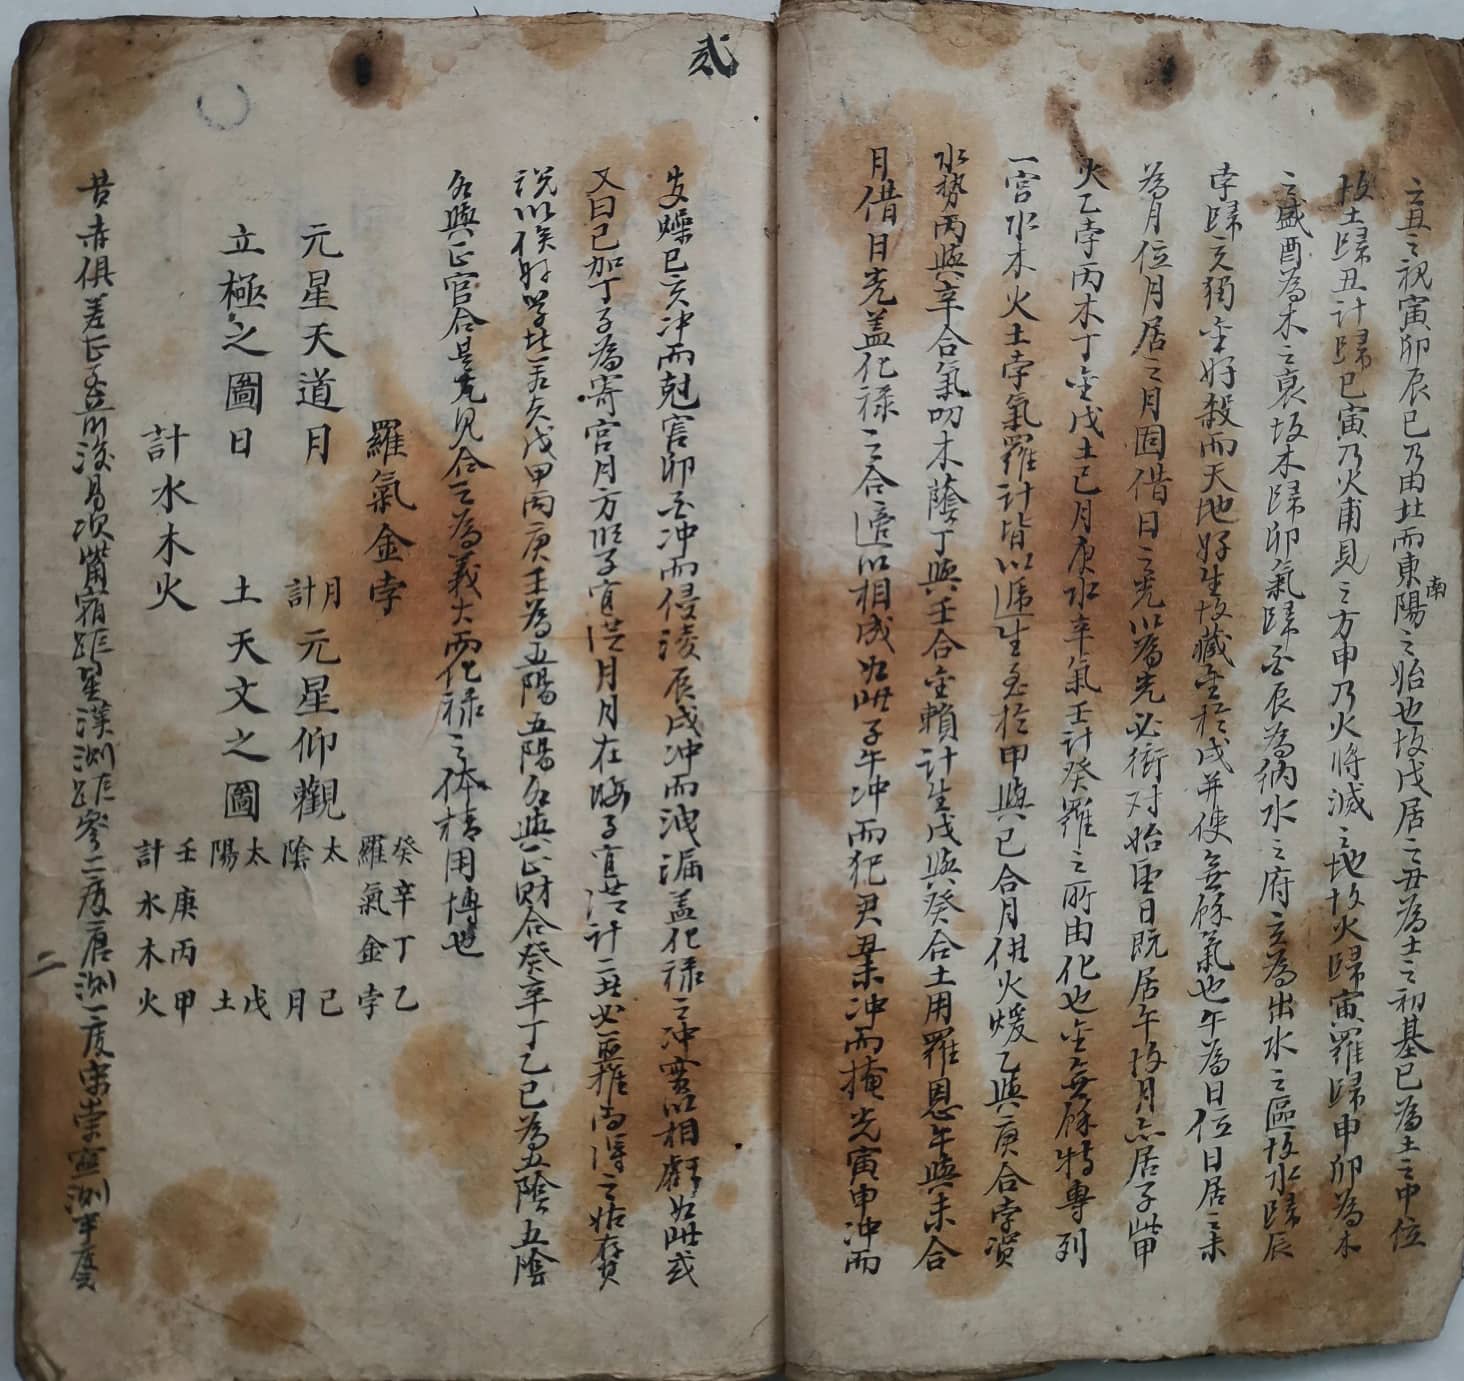 之丑之視寅卯辰巳乃由北而東陽之始也故戊居之丑為土之初基已為土之中位
南
故土歸丑計歸巳寅乃火甫見之方申乃火將滅之地故火歸寅羅歸申卯為木
之盛酉為木之衰故木歸卯氣歸酉辰為納水之府亥為出水之區故水歸辰
孛歸亥獨金好殺而天地好生故藏金於戌并使無餘氣也午為日位日居之未
為月位月居之月固借日之光以為光必衝对始重日既居午故月亦居子
火乙孛丙木丁金戊土已月庚水辛氣壬計癸羅之所由化也金無餘特專列
一宮水木火土孛氣羅計皆以遞生至於甲與已合月供火煖乙與庚合孛資
水勢丙與辛合氣叨木蔭丁與壬合金賴計生戊與癸合土用羅恩午與未合
月借日光盖化禄之合適以相成如此子午冲而犯君丑未冲而掩光寅申冲而
弍
燥巳亥冲而尅害卯酉冲而侵淩辰戌冲而洩漏盖化禄之冲實以相虧如此或
又曰已加丁子為寄宮月方照子宜從月月在晦子宜從計二
説以俟 甲丙庚壬為五陽五陽各與正財合癸辛丁乙已為五陰五陰
各與正官合 見合之為義大而化禄之体精用博也
羅氣金孛
元星天道月
立極之圖日
計水木火
月計元星仰觀
土天文之圖
癸羅 辛氣 丁金 乙孛
太陰 已月
太陽 戊土
壬計 庚水 丙木 甲火
昔赤俱差 宿 星漢測 參二度唐測一度宋崇寧測半度
二